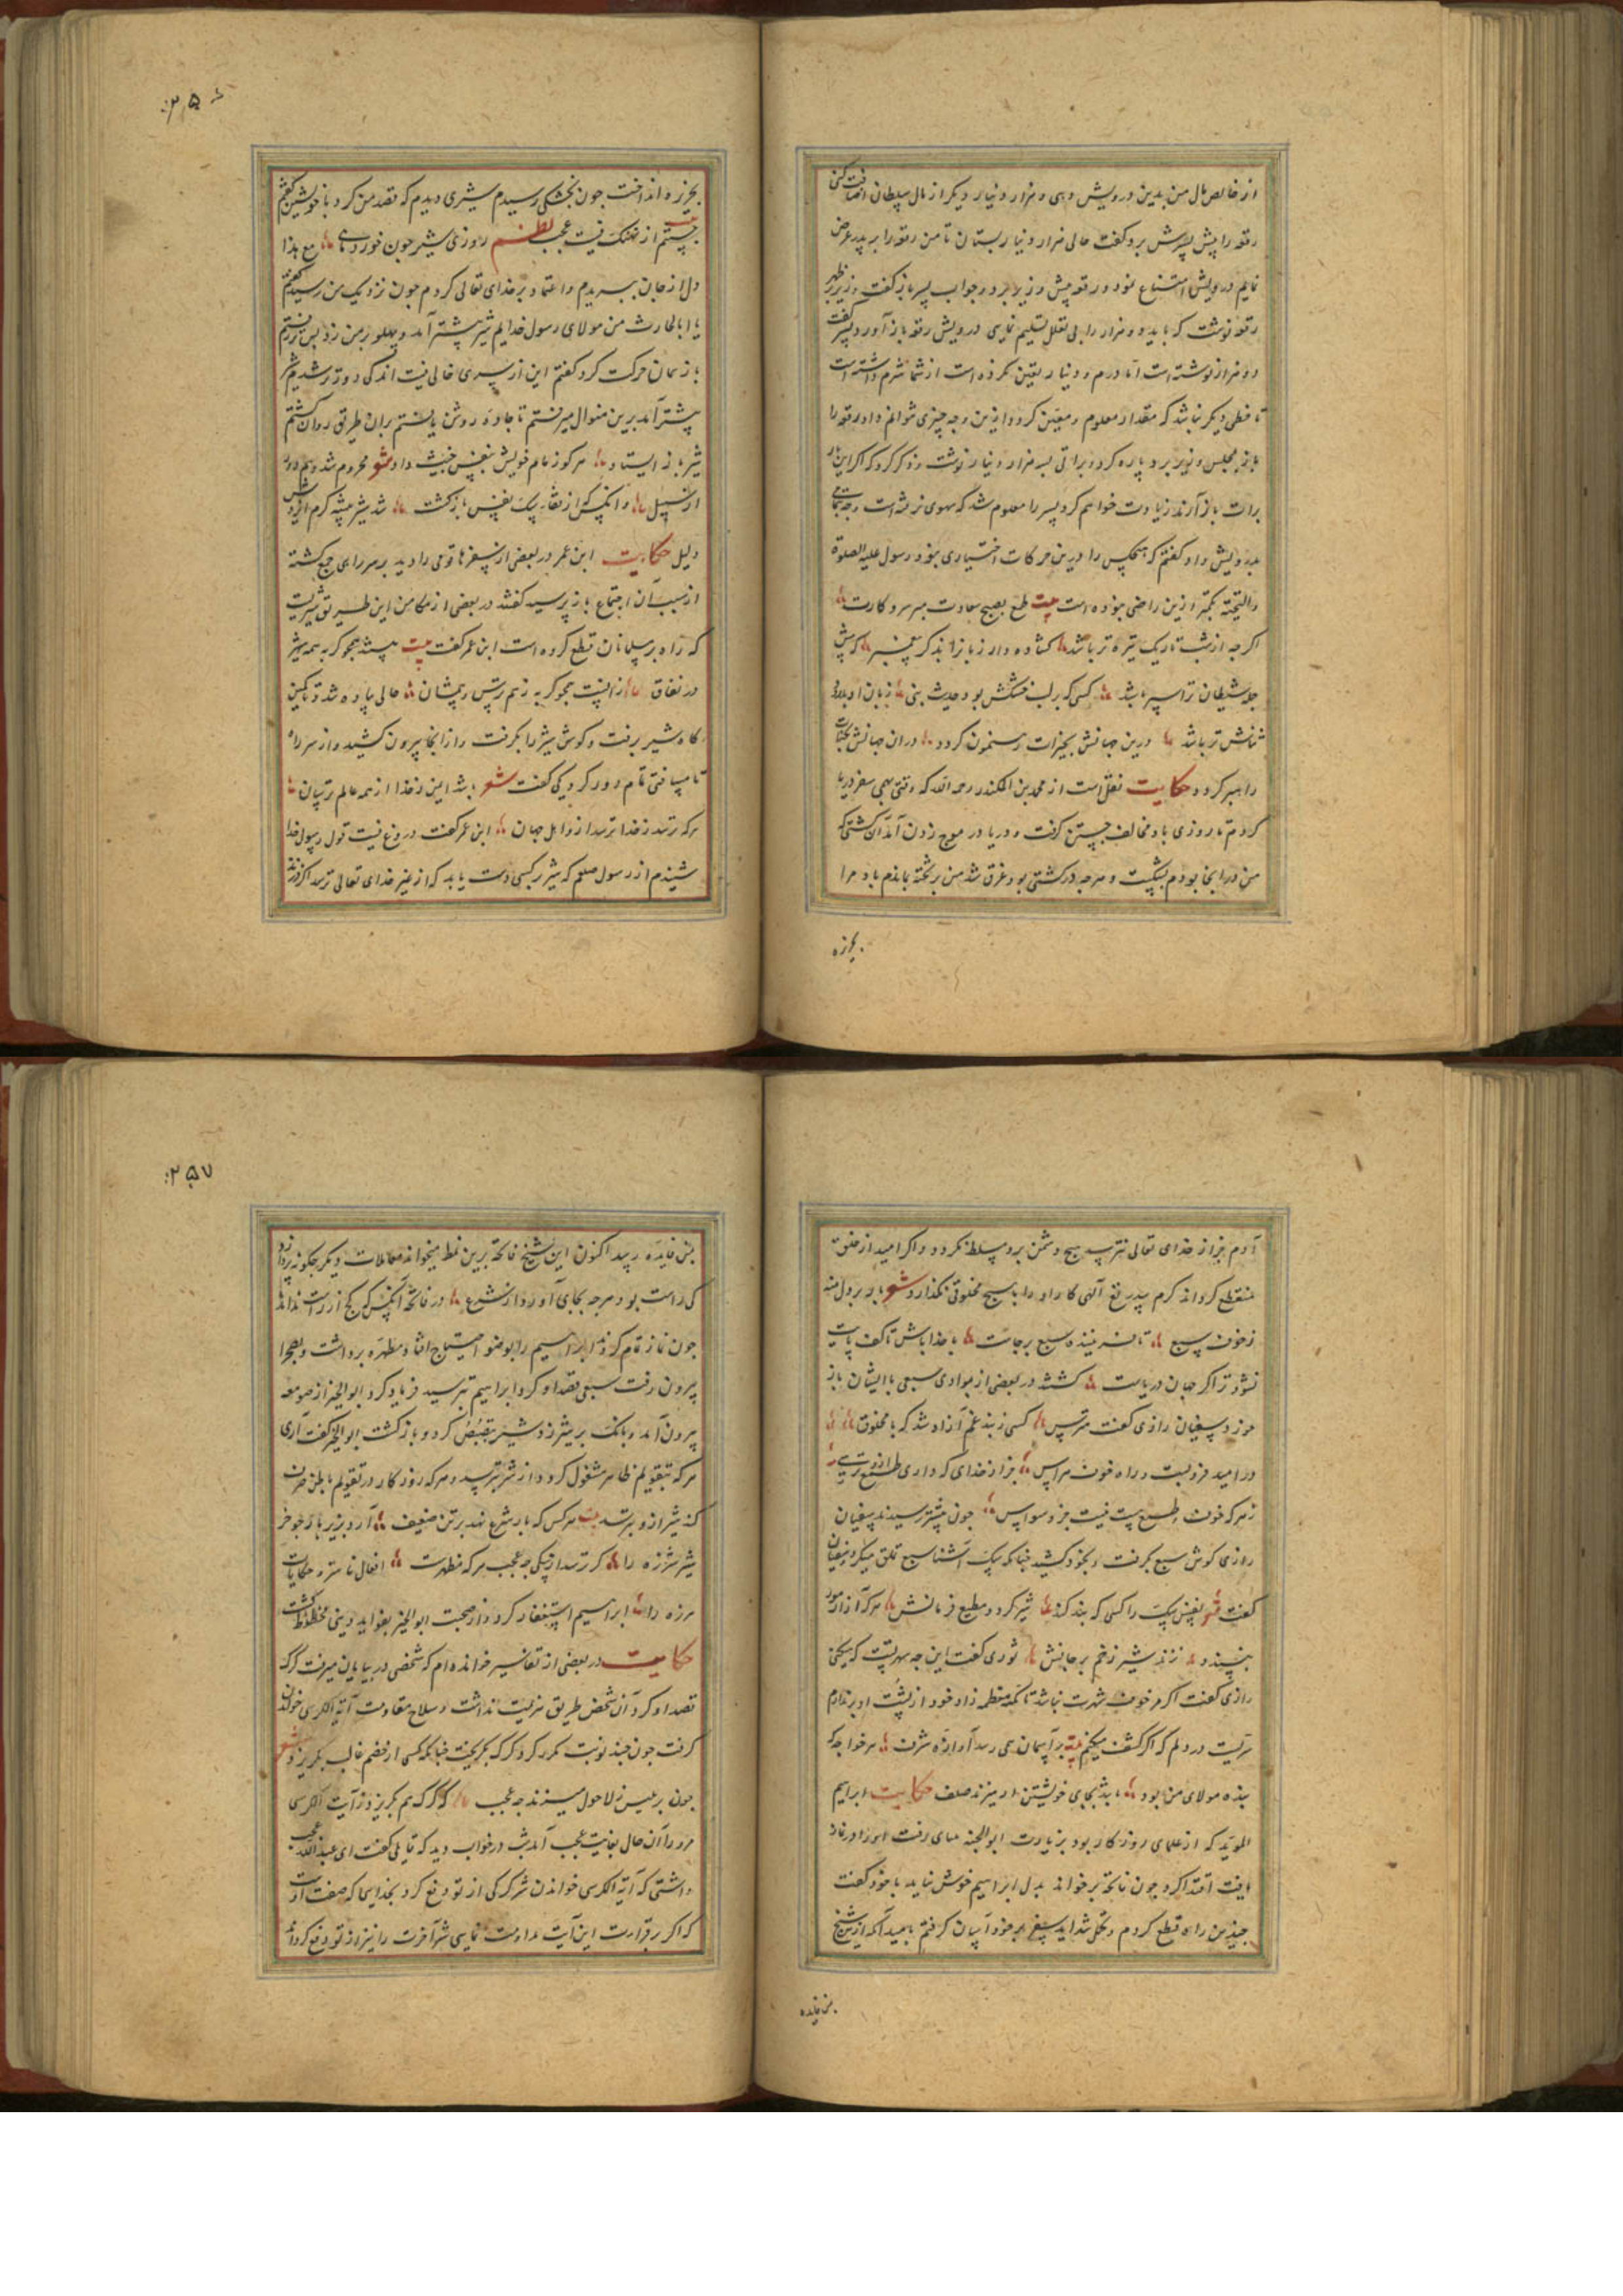 از خالص مال من بدین درویش دهی و هزار دینار دیکر از مال سلطان اضافت کنی
رقعه را پیش پسرش برد کفت حالی هزار دینار بستان تا من رقعه را بر پدر عرض
نمایم درویش امتناع نمود و رقعه پیش وزیر برد و جواب پسر باز کفت وزیر بر ظهر
رقعه نوشت که باید دو هزار را بی تعلل تسلیم نمایی درویش رقعه باز آورد پسر کفت
دو هزار نوشته است اما درم و دینار تعین نکرده است از شما شرم داشته است
تا خطی دیکر نباشد که مقدار معلوم و معین کردد ازین وجه چیزی نتوانم داد رقعه را
باز بمجلس وزیر برد پاره کرد و براتی بسه هزار دینار نوشت و ذکر کرد که اکر این
برات باز آرند زیادت خواهم کرد پسر را معلوم شد که سهوی نرفته است وجه بتمامی
بدرویش داد کفتم که هیچکس را درین حرکات اختیاری نبود رسول علیه الصلوة
والتحیة بکمتر ازین راضی نبوده است بیت طمع بصبح سعادت مبر سر و کارت
اکر چه از شب تاریک تیره تر باشد کشاده دار زبانرا بذکر پیغمبر که پیش
حمله شیطان ترا سپر باشد کسی که بر لب خشکش بود حدیث نبی زبان او بدرود
ثنانش تر باشد درین جهانش بخیرات رهنمون کردد در آن جهانش بجنات
راهبر کردد حکایت نقل است از محمد بن المنکدر رحمه الله که وقتی بهی سفر دریا
کردم تا روزی باد مخالف جستن کرفت و دریا در موج زدن آمد آن کشتی که
من در انجا بودم بشکست و هر چه در کشتی بود غرق شد من بر تخته بماندم باد مرا
بجزیره
۲۵۶
بجزیره انداخت چون بخشکی رسیدم شیری دیدم که قصد من کرد با خویشتن کفتم
جستم از نهنک نیست عجب نظم روزی شیر چون خورد ماهی مع هذا
دل از جان ببریدم و اعتماد بر خدای تعالی کردم چون نزدیک من رسید کفتم
یا ابا الحارث من مولای رسول خدایم شیر پیشتر آمد و پهلو بر من زد پس برفتم
باز همان حرکت کرد کفتم این از سری خالی نیست اندکی دورتر شدیم شیر
پیشتر آمد برین منوال میرفتم تا جاده روشن یافتم بران طریق روان کشتم
شیر باز ایستاد هر کو زمام خویش بنفس خبیث داد شعر محروم شد
از سبیل وانکس که از نقار سک نفس بازکشت شد شیر بیشه کرم
دلیل حکایت ابن عمر در بعضی از سفرها قومی را دید بر سر راهی جمع کشته
از سبب آن اجتماع باز پرسید کفتند در بعضی از مکامن این طریق شیریست
که راه بر مسلمانان قطع کرده است ابن عمر کفت بیت هستند همچو کربه همه شیر
در نفاق زانست همچو کربه زهم ترس و بیمشان حالی پیاده شد و تا کمین
کاه شیر برفت و کوش شیر را بکرفت و از انجا بیرون کشید و از سر راه
تا مسافتی تمام دور کرد یکی کفت شعر باشد ایمن ز خدا از همه عالم ترسان
هر که ترسد ز خدا ترسد ازو اهل جهان ابن عمر کفت دروغ نیست قول رسول خدا
شنیدم از رسول صلعم که شیر بر کسی دست یابد که از غیر خدای تعالی ترسد اکر فرزند
آدم بجز از خدای تعالی نترسد هیچ دشمن برو مسلط نکردد و اکر امید از خلق
منقطع کرداند کرم بیدریغ آلهی کار او را با هیچ مخلوقی نکذارد شعر بار بر دل منه
ز خوف سبع تا نه بیننده سبع برجاست با خدا باش تا کف پایت
نشود تر اکر جهان دریاست کشتند در بعضی از بوادی سبعی با ایشان باز
خورد سفیان رازی کفت مترس کسی ز بند غم آزاد شد که با مخلوق
در امید فروبست و راه خوف و هراس جز از خدای که داری طمع
ز هر که خوف و طمع هست نیست جز وسواس چون پیشتر رسیدند سفیان
رازی کوش سبع کرفت و بخود کشید چنانکه سک آشنا سبع تملق میکرد سفیان
کفت شعر نفس سک را کسی که بند کند شیر کردد مطیع فرمانش هر که آزار مور
نپسندد نزند شیر زخم بر جانش ثوری کفت این چه شهرتست که میکنی
رازی کفت اکر خوف شهرت نباشد تا مکه معظمه زاد خود از پشت او بر ندارم
سریست در دلم که اکر کشف میکنم بیت بر آسمان همی رسد آوازه شرف هر خواجه که
بنده مولای من بود باشد بجای خویشتن ار میزند صلف حکایت ابراهیم
المؤید که از علمای روزکار بود بزیارت ابو الخیر رفت او را در نماز
یافت اقتدا کرد چون فاتحه برخواند بدل ابراهیم خوش نیامد با خود کفت
چندین راه قطع کردم و تحمل شداید سفر بر خود آسان کرفتم بامید آنکه ازین شیخ
من فایده
۲۵۷
من فایده رسد اکنون این شیخ فاتحه برین نمط میخواند معاملات دیکر چکونه پردازد
کی راست بود هر چه بجای آورد از شرع در فاتحه آنکس که کج از راست نداند
چون نماز تمام کردند ابراهیم را بوضو احتیاج افتاد و مطهره برداشت و بصحرا
بیرون رفت سبعی قصد او کرد ابراهیم بترسید فریاد کرد ابو الخیر از صومعه
بیرون آمد و بانک بر شیر زد شیر تبصبص کرد و بازکشت ابو الخیر کفت آری
هر که بتقویم ظاهر مشغول کردد از شیر بترسد و هر که روزکار در تقویم باطن صرف
کند شیر ازو بترسد بیت هر کس که بار شرع نهد بر تن ضعیف آرد بزیر بار چو خر
شیر شرزه را کر ترسد از یکی چه عجب هر که مظهرست افعال ناستوده حکایات
هرزه را ابراهیم استغفار کرد و از صحبت ابو الخیر بفواید دینی محظوظ کشت
حکایت در بعضی از تفاسیر خوانده ام که شخصی در بیابان میرفت کرک
قصد او کرد آن شخص طریق هزیمت نداشت و سلاح مقاومت آیة الکرسی خواندن
کرفت چون چند نوبت مکرر کرد کرک بکریخت چنانکه کسی از خصم غالب بکریزد شعر
چون بر عیس ز لاحول میرمند چه عجب که کرک هم بکریزد ز آیت الکرسی
مرد را آن حال بغایت عجب آمد شب در خواب دید که قایلی کفت ای عبد الله عجب
داشتی که آیة الکرسی خواندن شر کرکی از تو دفع کرد بخدایی که صفت اوست
که اکر بر قرائت این آیت مداومت نمایی شر آخرت را نیز از تو دفع کرداند